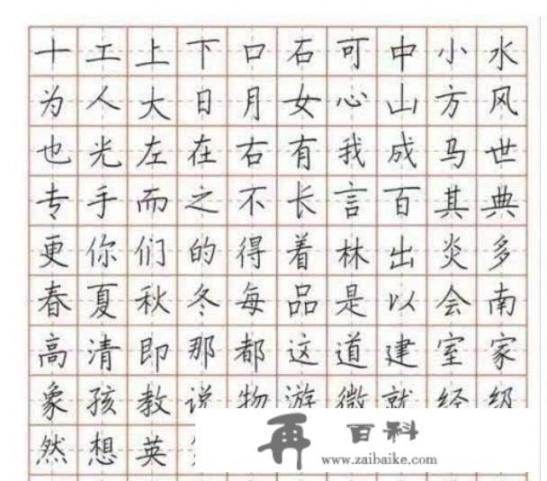 十工上下口石可中小水
为人大日月女心山方风
也光左在右有我成马世
专手而之不长言百其典
更你们的得着林出炎多
春夏秋冬每品是以会南
高清即那都这道建室家
象孩教说物游微就经级
然想英
再 百科
www.zaibaike.com